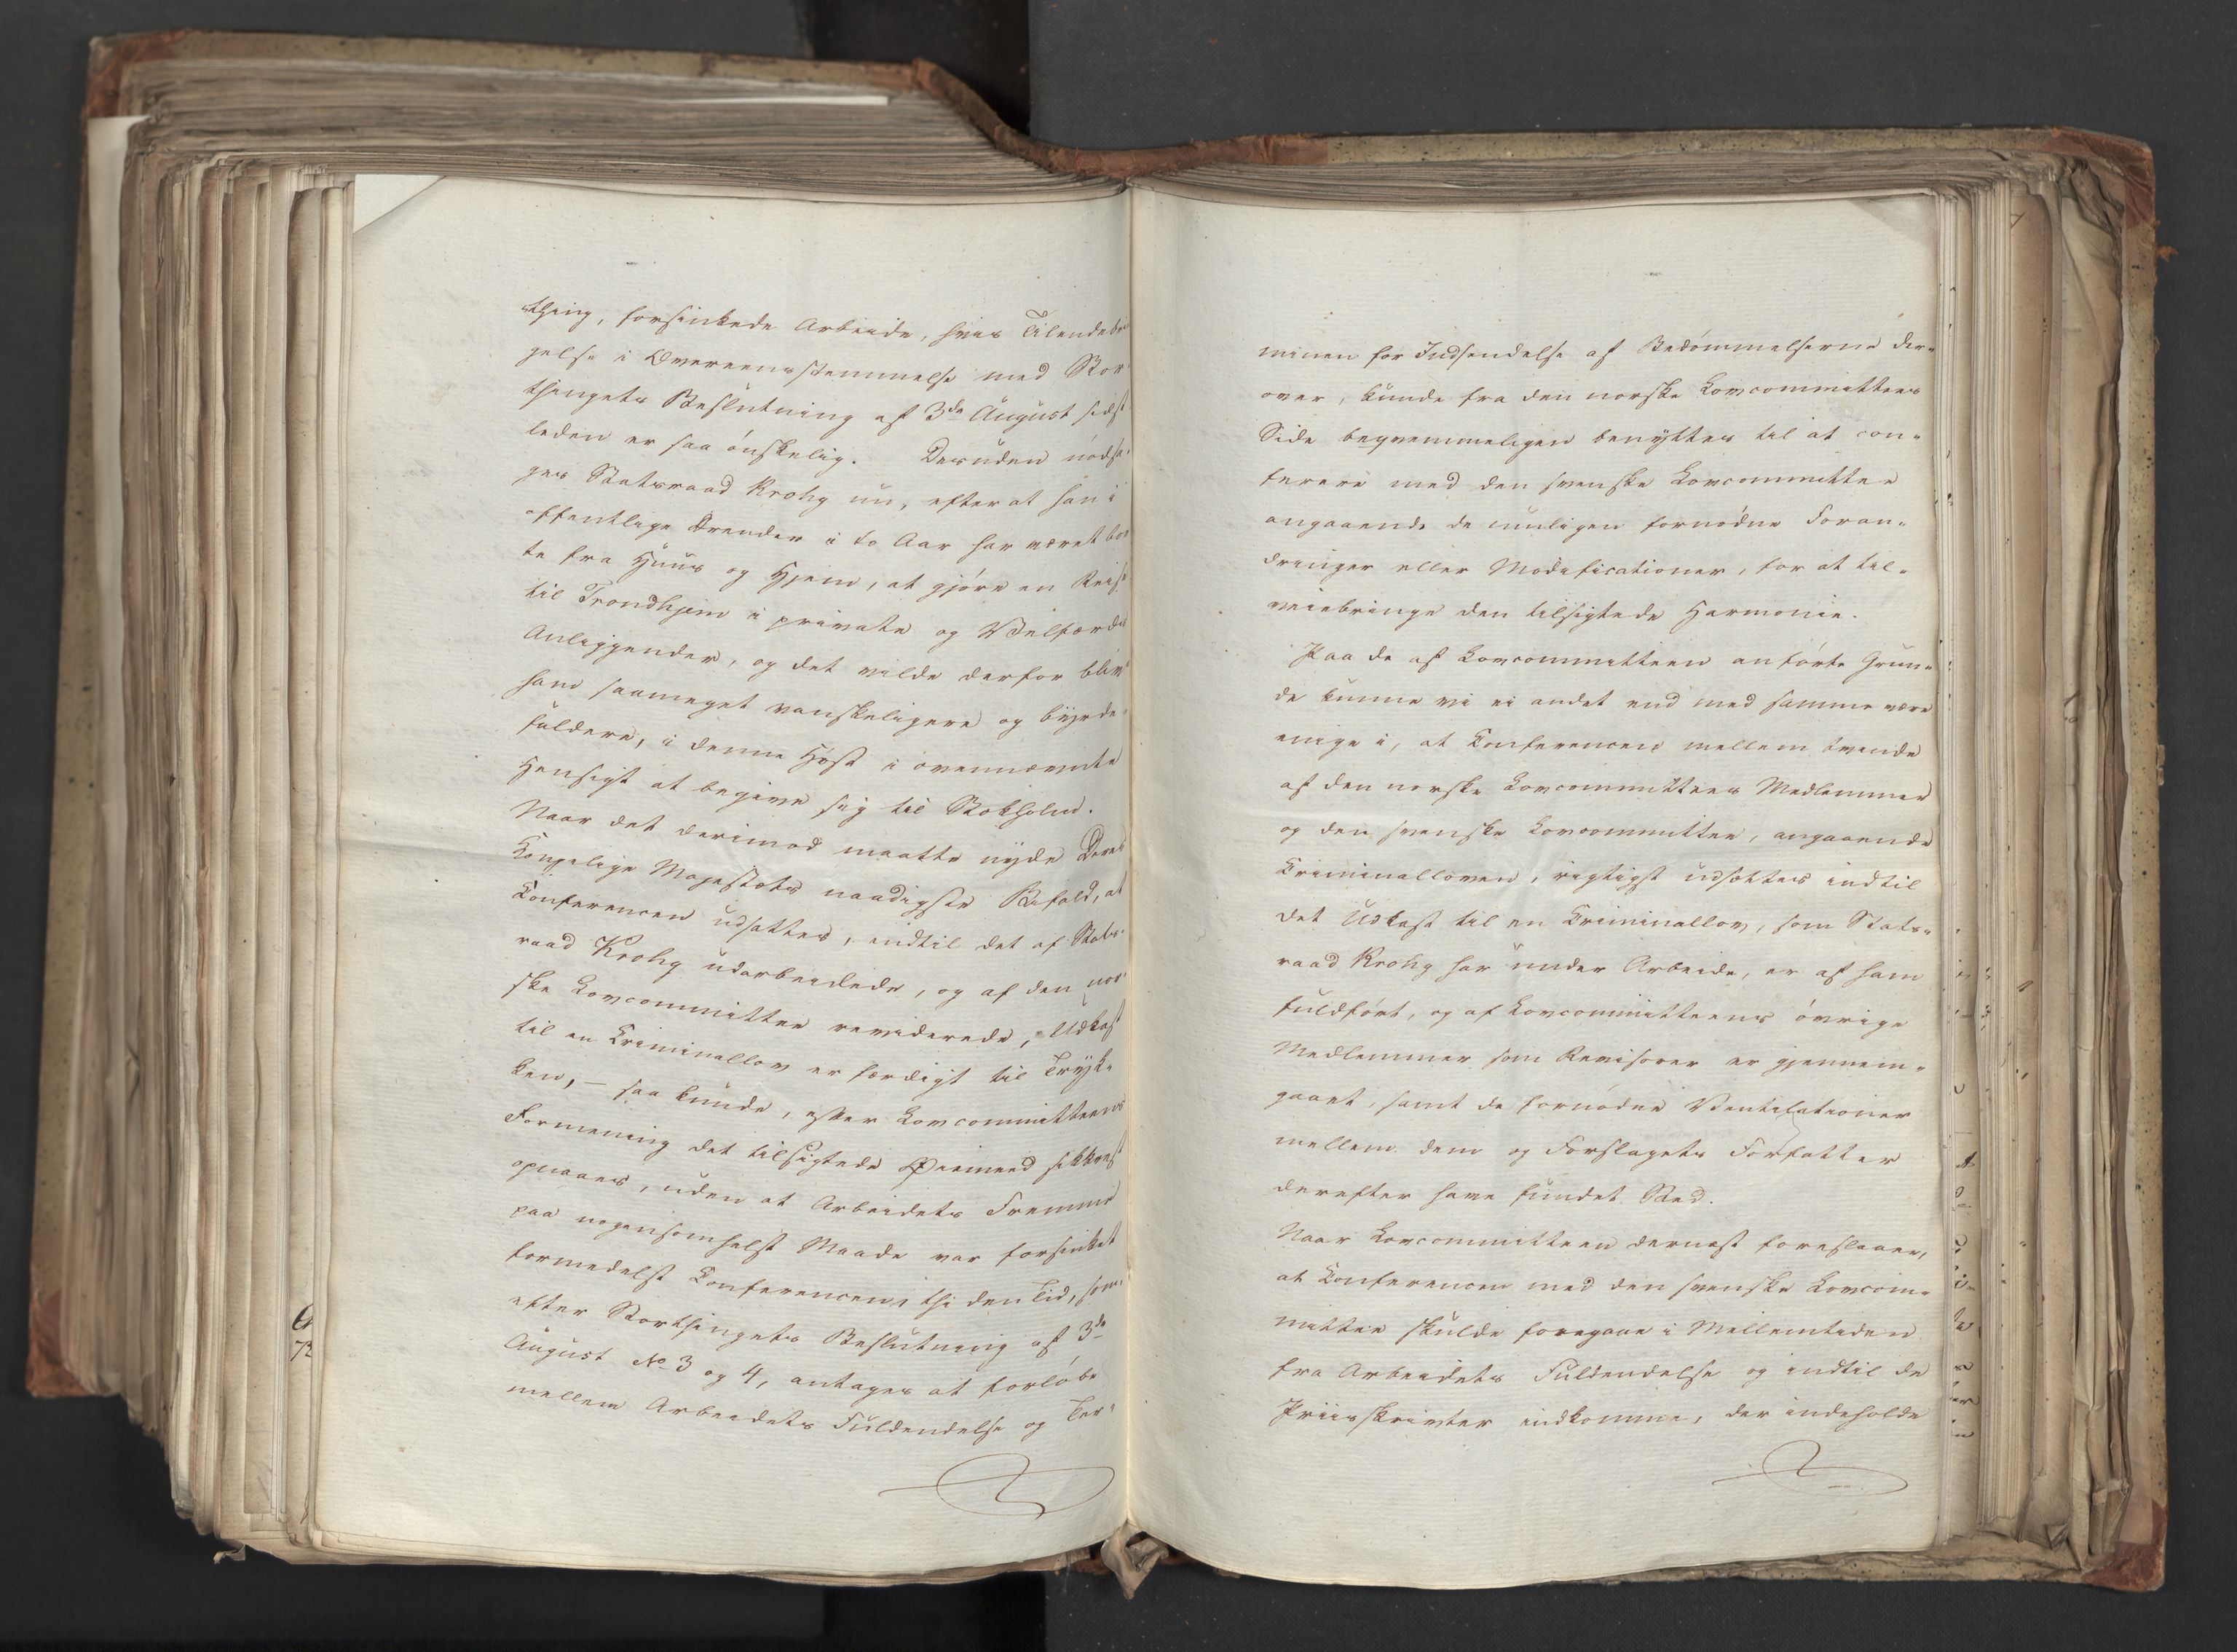 thing, forsinkede Arbeide, hvis Tilendebrin
gelse i Overeensstemmelse med Stor
thingets Beslutning af 3de August sidst
leden er saa ønskelig. Desuden nødsa-
ges Statsraad Krohg nu, efter at han i
offentlige Ærender i to Aar har været bor
te fra Huus og Hjem, at gjøre en Reise
til Trondhjem i private og Velfærds
Anliggender, og det vilde derfor blive
ham saameget vanskeligere og byrde-
fuldere, i denne Høst i ovennævnte
Hensigt at begive sig til Stokholm.
Naar det derimod maatte nyde Deres
Kongelige Majestæts naadigste Bifald, at
Conferencen udsattes, indtil det af Stats-
raad Krohg udarbeidede, og af den nor-
ske Lovcommittee reviderede, Udkast
til en Criminallov er færdigt til Tryk-
ken, – saa kunde, efter Lovcommitteens
Formening det tilsigtede Øiemeed sikkrest
opnaaes, uden at Arbeidets Fremme
paa nogensomhelst Maade var forsinket
formedelst Conferencen, thi den Tid, som,
efter Storthingets Beslutning af 3de
August No 3 og 4, antages at forløbe
mellem Arbeidets Fuldendelse og Ter-
minen for Indsendelse af Bedømmelserne der-
over, kunde fra den norske Lovcommittees
Side beqvemmeligen benyttes til at con-
ferere med den svenske Lovcommittee
angaaende de muligen fornødne Foran-
dringer eller Modificationer, for at til-
veiebringe den tilsigtede Harmonie.
Paa de af Lovcommitteen anførte Grun-
de kunne vi ei andet end med samme være
enige i, at Conferencen mellem tvende
af den norske Lovcommittees Medlemmer
og den svenske Lovcommittee, angaaende
Criminalloven, rigtigst udsættes indtil
det Udkast til en Criminallov, som Stats-
raad Krohg har under Arbeide, er af ham
fuldført, og af Lovcommitteens øvrige
Medlemmer som Revisorer er gjennem-
gaaet, samt de fornødne Ventilationer
mellem dem og Forslagets Forfatter
derefter have fundet Sted.
Naar Lovcommitteen dernæst foreslaaer,
at Conferencen med den svenske Lovcom-
mittee skulde foregaae i Mellemtiden
fra Arbeidets Fuldendelse og indtil de
Priisskrivter indkomme, der indeholde